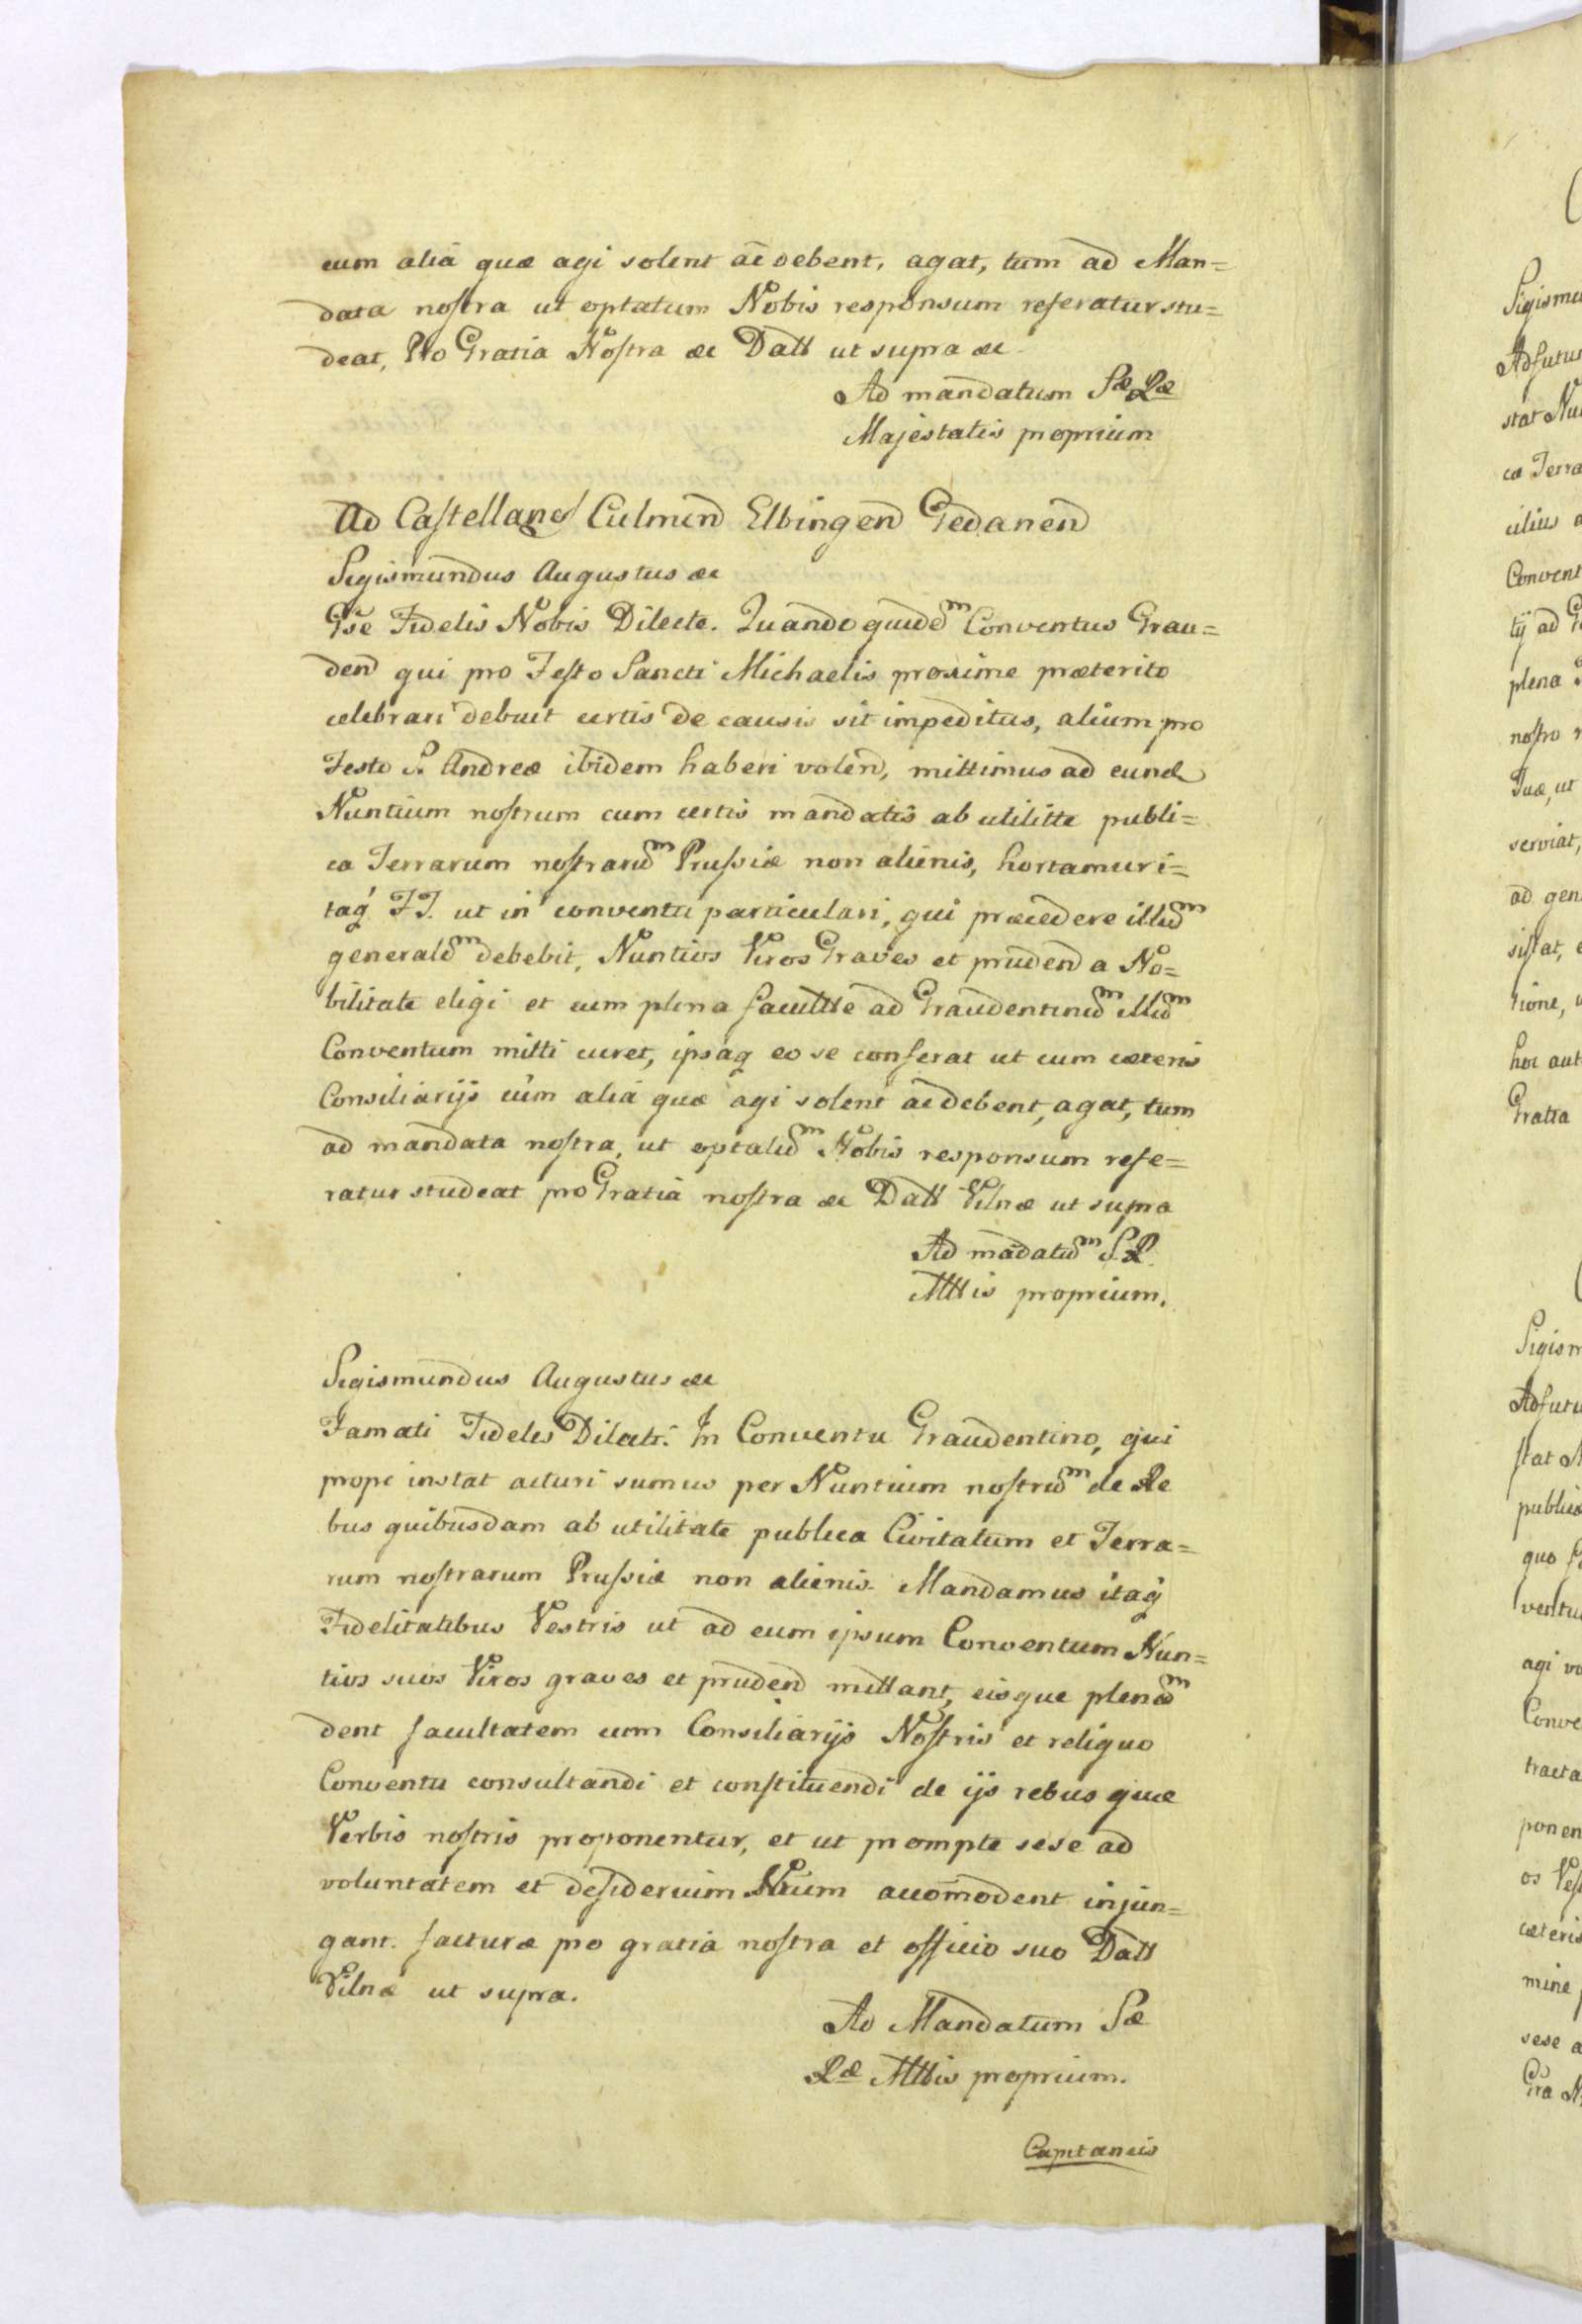 cum alia quæ agi solent ac debent, agat, tum ad Man=
data nostra ut optatum Nobis responsum referatur stu=
deat, Pro Gratia Nostra &c Datt ut supra &c
Ad mandatum Sæ Ræ
Majestatis proprium
Ad Castellanos Culmen Elbingen Gedanen
Sigismundus Augustus &c
Gse Fidelis Nobis Dilecte. Quandoquidem Conventus Grau=
den qui pro Festo Sancti Michaelis proxime præterito
celebrari debuit certis de causis sit impeditus, alium pro
Festo S. Andreæ ibidem haberi volen, mittimus ad eund
Nuntium nostrum cum certis mandatis ab utilitte publi=
ca Terrarum nostrarum Prussiæ non alienis, hortamur i=
taq FT. ut in conventu particulari, qui præcedere illum
generalem debebit, Nuntios Viros Graves et pruden a No=
bilitate eligi et cum plena facultte ad Graudentinum illum
Conventum mitti curet, ipsaq eo se conferat ut cum cæteris
Consiliarijs cum alia quæ agi solent ac debent, agat, tum
ad mandata nostra, ut optatum Nobis responsum refe=
ratur studeat pro Gratia nostra &c Datt Vilnæ ut supra
Ad mādatum S. R.
Mttis proprium.
Sigismundus Augustus &c
Famati Fideles Dilecti. In Conventu Graudentino, qui
prope instat acturi sumus per Nuntium nostrum de Re
bus quibusdam ab utilitate publica Civitatum et Terra=
rum nostrarum Prussiæ non alienis. Mandamus itaq
Fidelitatibus Vestris ut ad eum ipsum Conventum Nun=
tios suos Viros graves et pruden mittant, eisque plenam
dent facultatem cum Consiliarijs Nostris et reliquo
Conventu consultandi et constituendi de ijs rebus quæ
Verbis nostris proponentur, et ut prompte sese ad
voluntatem et desiderium Nrum accōmodent injun=
gant. facturæ pro gratia nostra et officio suo Datt
Vilnæ ut supra.
Ad Mandatum Sæ
Ræ Mttis proprium.
Capitaneis
Sigismu
Ad futur
stat Nu
ca Terra
cilius a
Convent
tij ad G
plena
nostro
Tuæ, ut
serviat,
ad gen
sistat, e
tione,
hoc aut
Gratia
Sigism
Ad futu
stat
publica
quo
ventu
agi vo
Conve
tracta
ponen
os Ves
cæteris
mine
sese a
Gra N